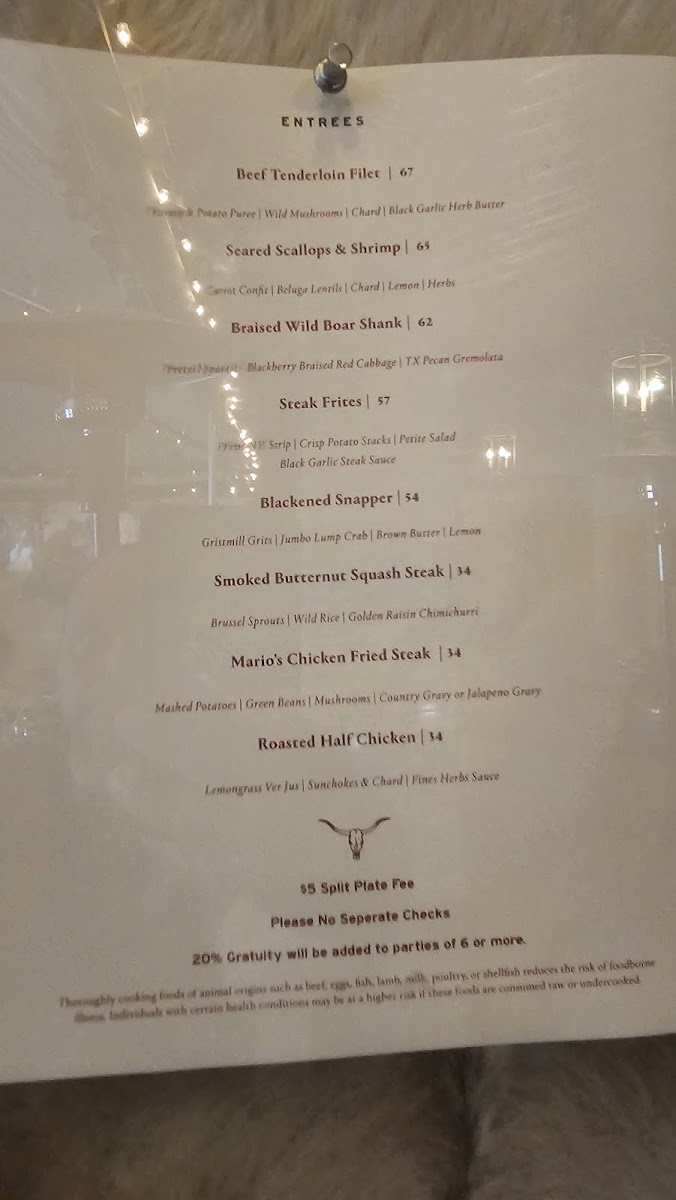 ENTREES
Beef Tenderloin Filet | 67
& Potato Puree | Wild Mushrooms | Chard | Black Garlic Herb Butter
Seared Scallops & Shrimp | 65
Carrot Confit | Beluga Lentils | Chard | Lemon | Herbs
Braised Wild Boar Shank | 62
Blackberry Braised Red Cabbage | TX Pecan Gremolata
Steak Frites | 57
Strip | Crisp Potato Stacks | Petite Salad
Black Garlic Steak Sauce
Blackened Snapper | 54
Gristmill Grits | Jumbo Lump Crab | Brown Butter | Lemon
Smoked Butternut Squash Steak | 34
Brussel Sprouts | Wild Rice | Golden Raisin Chimichurri
Mario's Chicken Fried Steak | 34
Mashed Potatoes | Green Beans | Mushrooms | Country Gravy or Jalapeno Gravy
Roasted Half Chicken | 34
Lemongrass Ver Jus | Sunchokes & Chard | Fines Herbs Sauce
$5 Split Plate Fee
Please No Seperate Checks
20% Gratuity will be added to parties of 6 or more.
Thoroughly cooking foods of animal origins such as beef, eggs, fish, lamb, milk, poultry, or shellfish reduces the risk of foodborne
illness. Individuals with certain health conditions may be at a higher risk if these foods are consumed raw or undercooked.